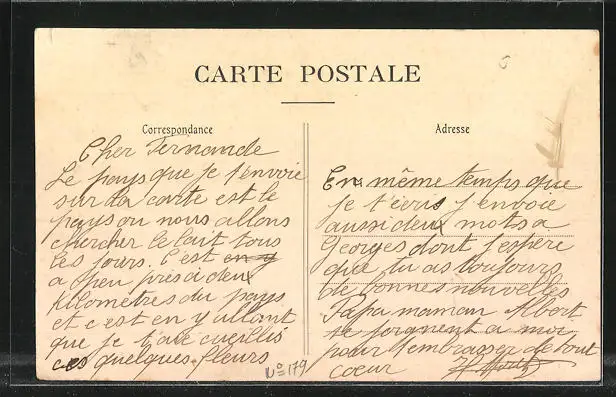 CARTE POSTALE
Correspondance
Cher Fernande
Le pays que je t'envoie
sur la carte est le
pays ou nous allons
chercher le lait tous
les jours. C'est en y
a peu près a deux
Kilometres du pays
et c'est en y allant
que je t'aie cueillis
ces quelques fleurs
No 179
Adresse
En même temps que
je t'écris j'envoie
aussi deux mots a
Georges dont j'espère
que tu as toujours
de bonnes nouvelles
Papa maman Albert
se joignent a moi
pour t'embrasser de tout
coeur